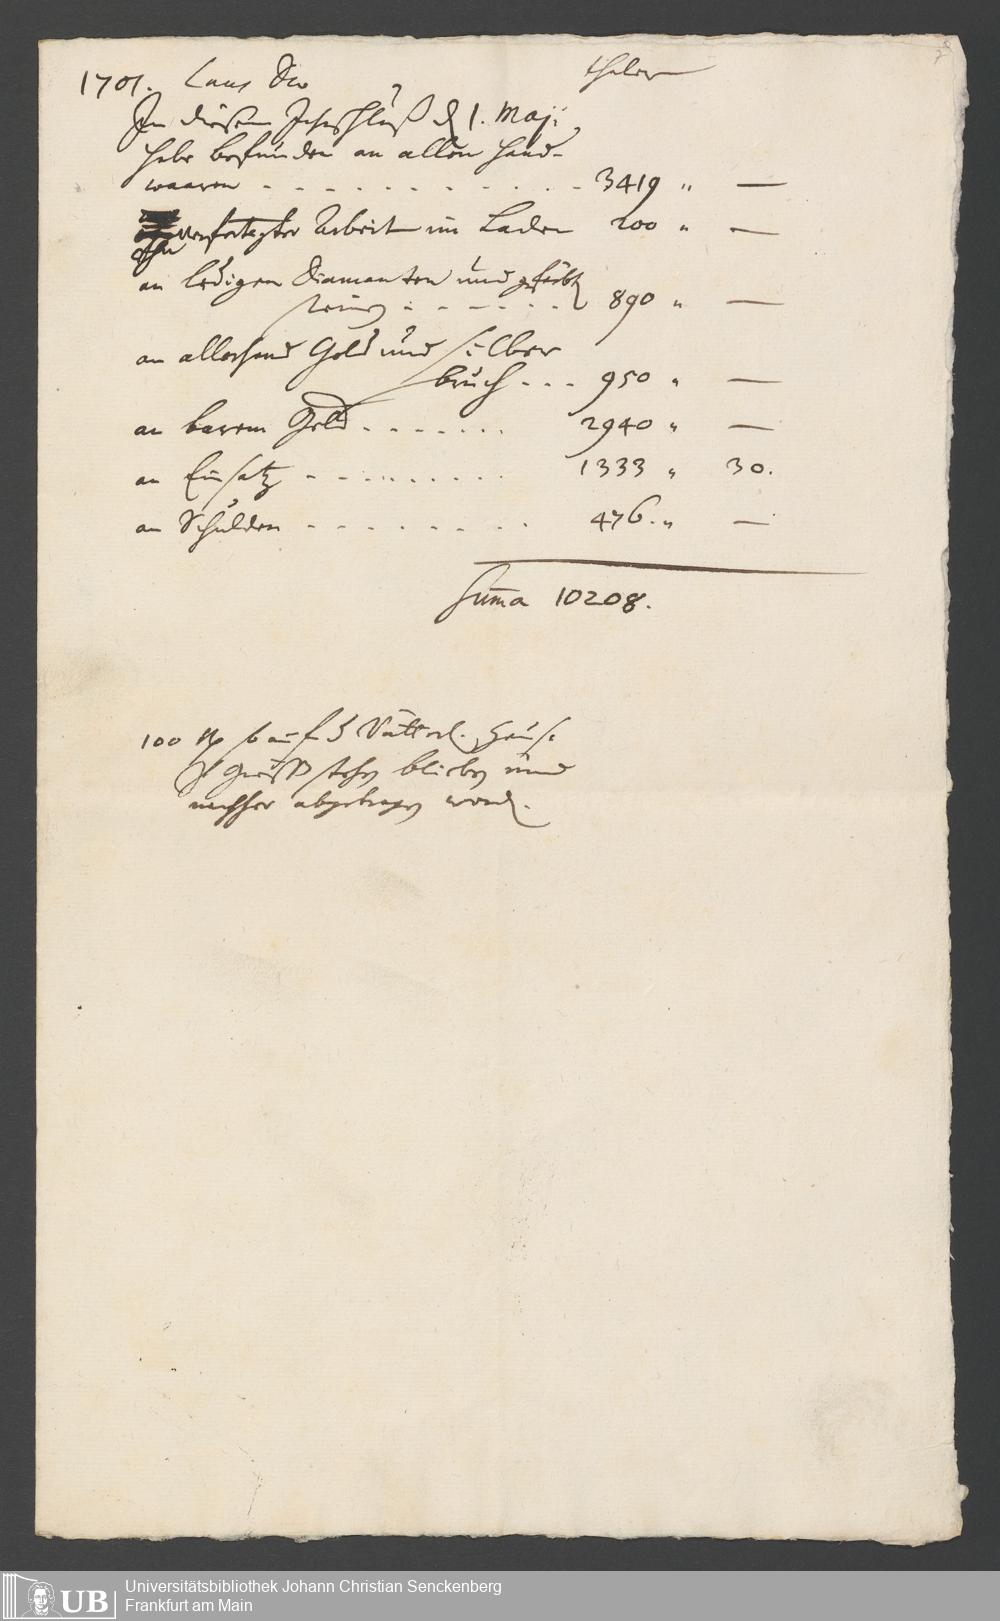 1701. Laus Deo thaler
In diesem Jahrschluß d. 1. Maji
habe befunden an allen hand-
waaren - - - - - - - - - - - 3419 „ —
verfertigter Arbeit im Laden 200 „ —
an ledigen Diamanten und gefärbt
steinen - - - - - 890 „ —
an allerhand Gold und silber
bruch - - - 950 „ —
an barem Geld - - - - - - - 2940 „ —
an Einsatz - - - - - - - - - 1333 „ 30.
an Schulden - - - - - - - - 476. „ —
Summa 10208.
100 so auf Vätterl. Hause
stehen blieben und
nachher abgetragen word.
Universitätsbibliothek Johann Christian Senckenberg
Frankfurt am Main
UB